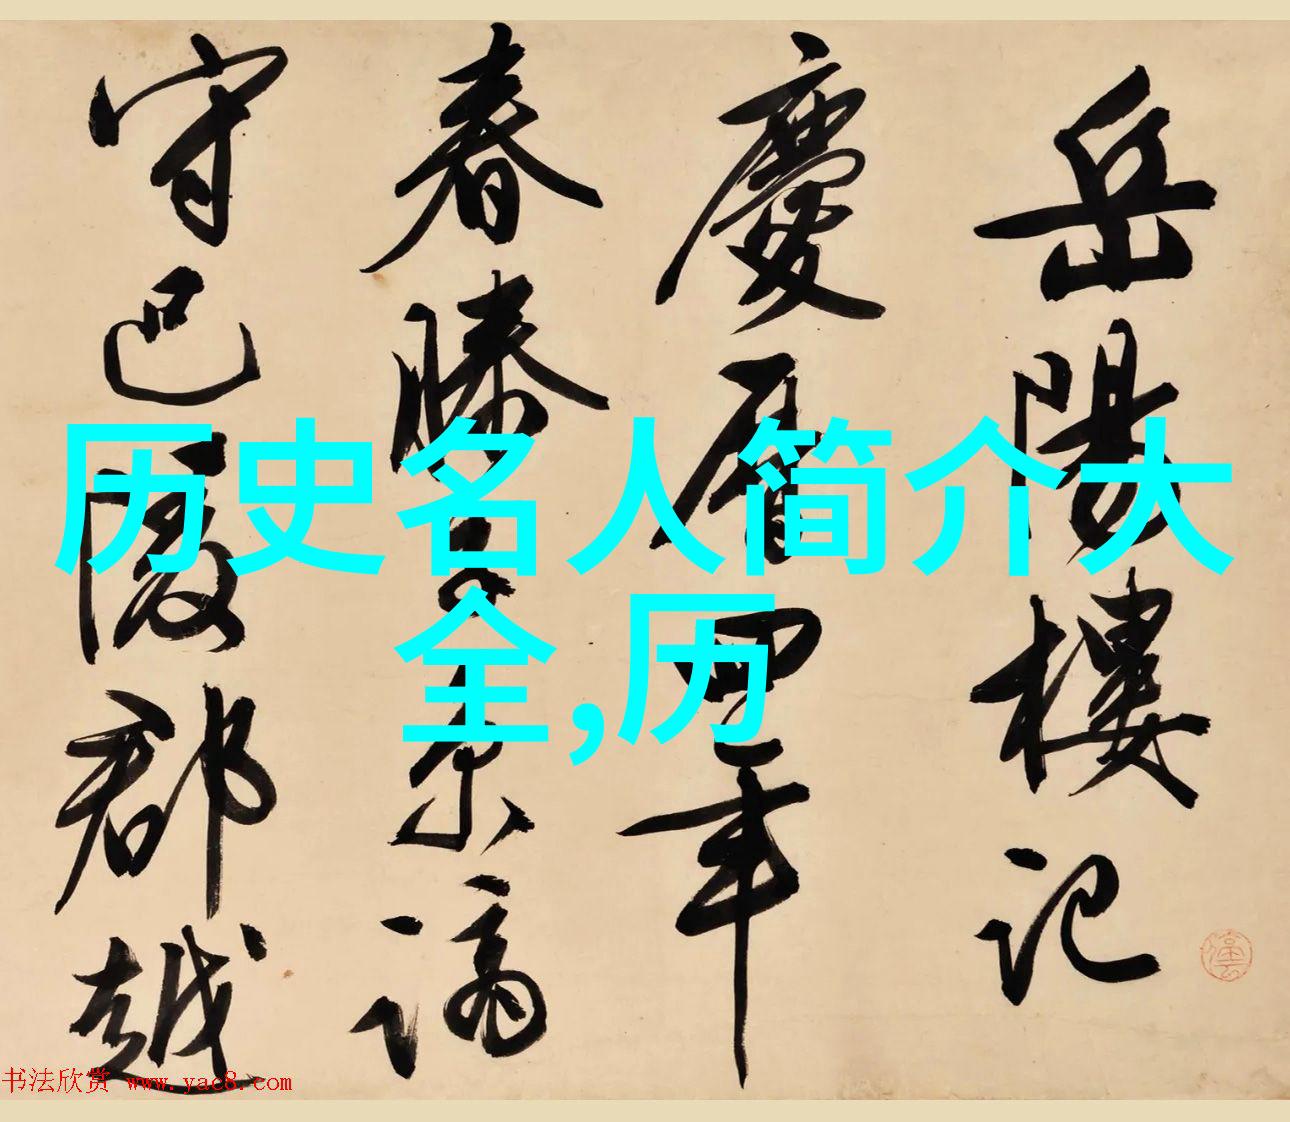 岳陽樓記
慶曆四年
春滕子京謫
守巴陵郡越
历史名人简介大
全,历
书法欣赏 www.yac8.com